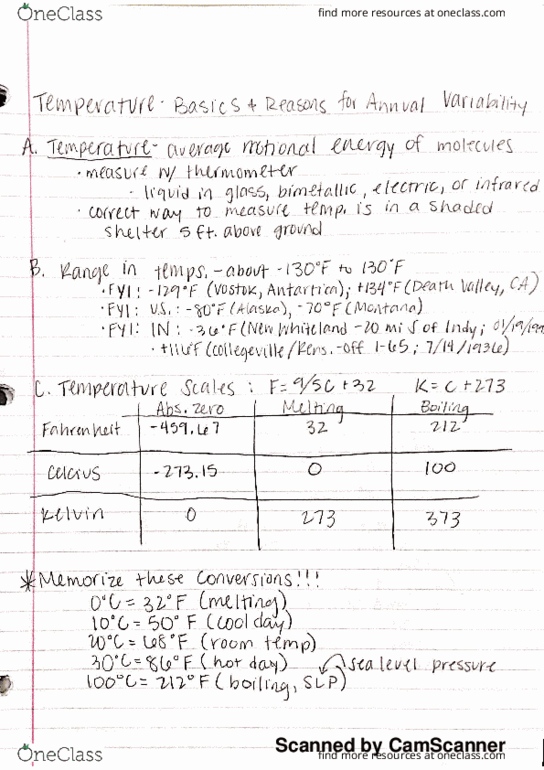 OneClass
find more resources at oneclass.com
Temperature - Basics + Reasons for Annual Variability
A. Temperature - average motional energy of molecules
· measure w/ thermometer
- liquid in glass, bimetallic, electric, or infrared
· correct way to measure temp. is in a shaded
shelter 5 ft. above ground
B. Range in temps. - about -130°F to 130°F
· FYI: -129°F (Vostok, Antartica); +134°F (Death Valley, CA)
· FYI: U.S.: -80°F (Alaska), -70°F (Montana)
· FYI: IN: -36°F (New Whiteland - 20 mi S of Indy; 01/19/199
· +116°F (Collegeville/Rens. - off I-65; 7/14/1936)
C. Temperature Scales: F = 9/5C + 32 K = C + 273
Abs. zero Melting Boiling
Fahrenheit -459.67 32 212
Celcius -273.15 0 100
Kelvin 0 273 373
*Memorize these conversions!!!
0°C = 32°F (melting)
10°C = 50°F (cool day)
20°C = 68°F (room temp)
30°C = 86°F (hot day)
sea level pressure
100°C = 212°F (boiling, SLP)
Scanned by CamScanner
OneClass
find more resources at oneclass.com